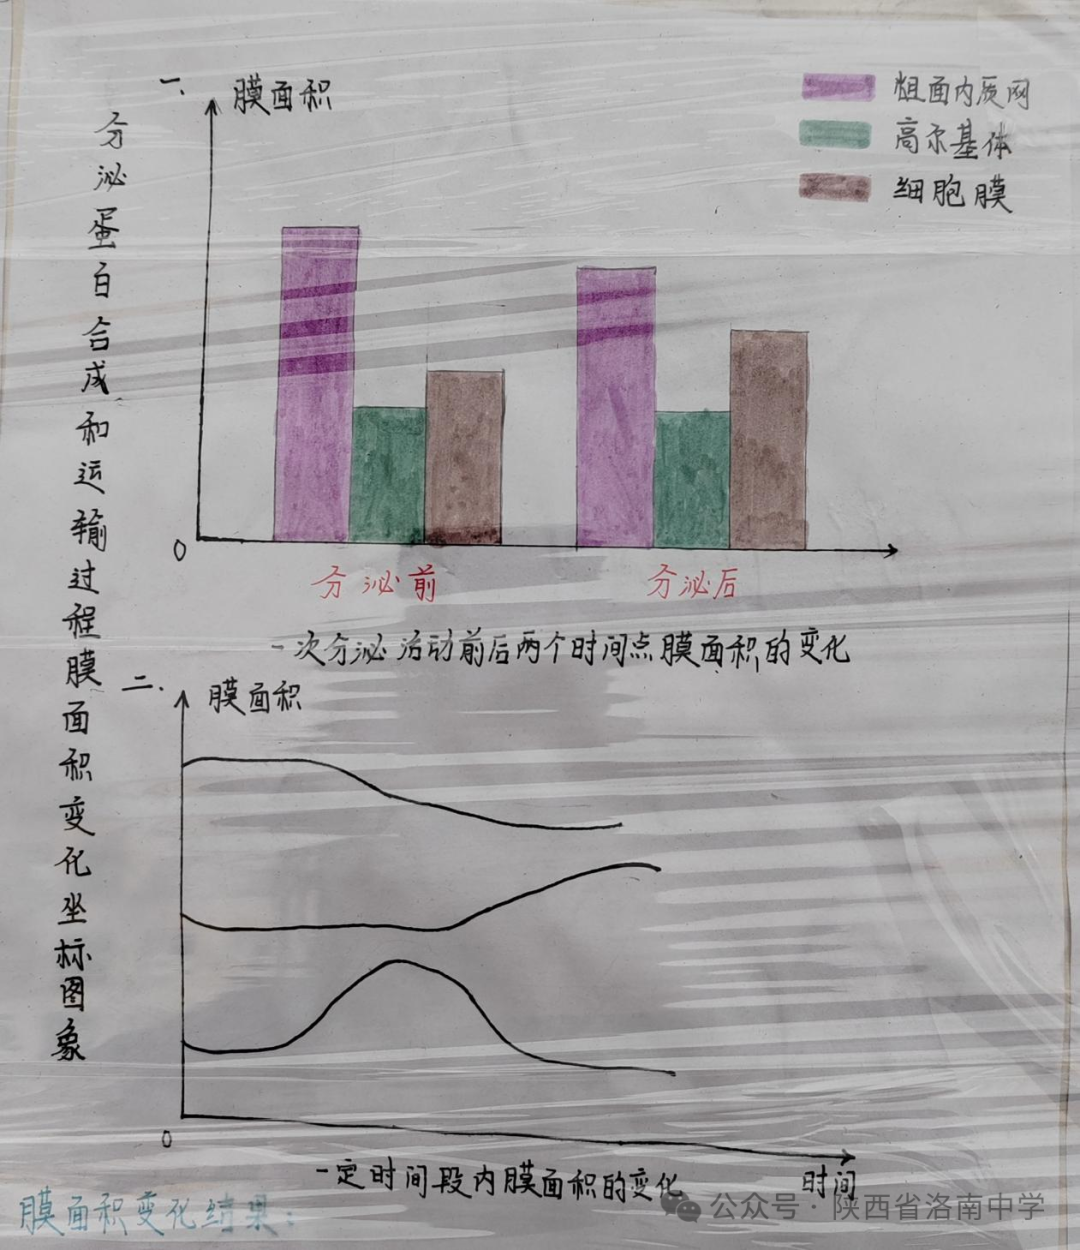 分泌蛋白合成和运输过程膜面积变化坐标图象
一、
膜面积
粗面内质网
高尔基体
细胞膜
0
分泌前
分泌后
一次分泌活动前后两个时间点膜面积的变化
二.
膜面积
0
时间
一定时间段内膜面积的变化
膜面积变化结果：
公众号·陕西省洛南中学